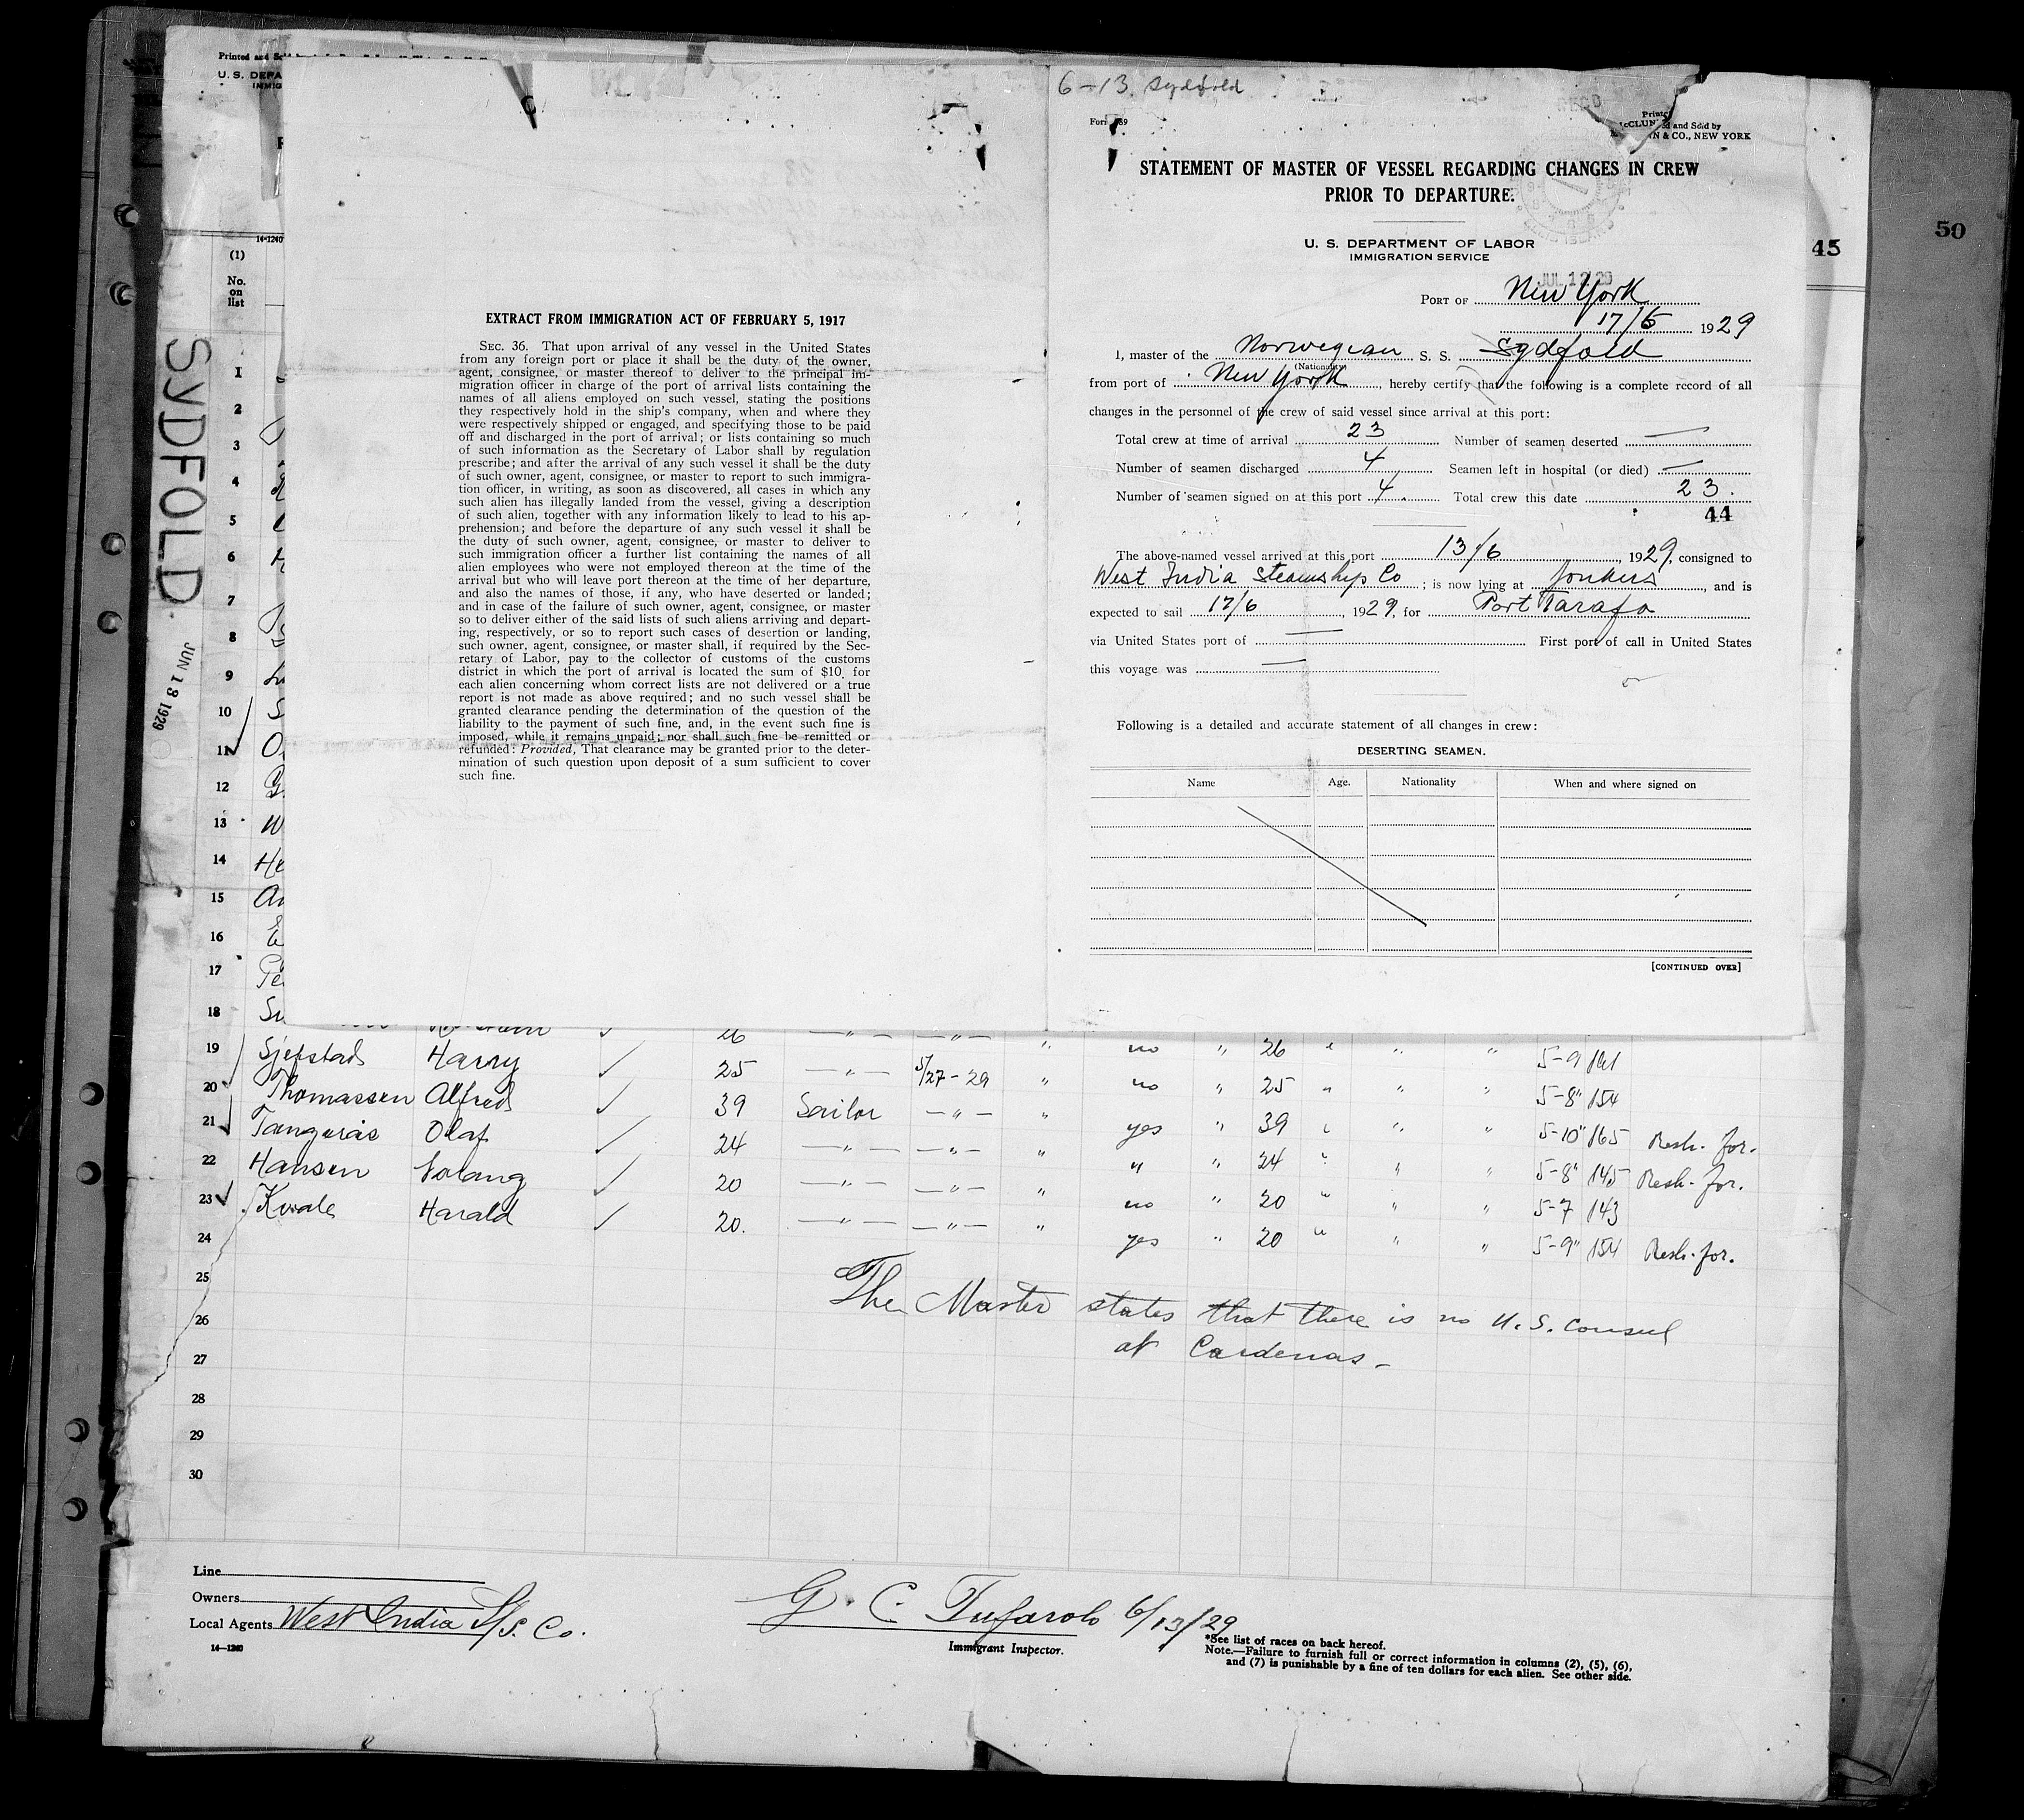 Printed and
U. S. DEPA
IMMIG
14-1240
(1)
No.
on
list
SYDFOLD
JUN 13 1929
EXTRACT FROM IMMIGRATION ACT OF FEBRUARY 5, 1917
SEC. 36. That upon arrival of any vessel in the United States
from any foreign port or place it shall be the duty of the owner,
agent, consignee, or master thereof to deliver to the principal im-
migration officer in charge of the port of arrival lists containing the
names of all aliens employed on such vessel, stating the positions
they respectively hold in the ship's company, when and where they
were respectively shipped or engaged, and specifying those to be paid
off and discharged in the port of arrival; or lists containing so much
of such information as the Secretary of Labor shall by regulation
prescribe; and after the arrival of any such vessel it shall be the duty
of such owner, agent, consignee, or master to report to such immigra-
tion officer, in writing, as soon as discovered, all cases in which any
such alien has illegally landed from the vessel, giving a description
of such alien, together with any information likely to lead to his ap-
prehension; and before the departure of any such vessel it shall be
the duty of such owner, agent, consignee, or master to deliver to
such immigration officer a further list containing the names of all
alien employees who were not employed thereon at the time of the
arrival but who will leave port thereon at the time of her departure,
and also the names of those, if any, who have deserted or landed;
and in case of the failure of such owner, agent, consignee, or master
so to deliver either of the said lists of such aliens arriving and depart-
ing, respectively, or so to report such cases of desertion or landing,
such owner, agent, consignee, or master shall, if required by the Sec-
retary of Labor, pay to the collector of customs of the customs
district in which the port of arrival is located the sum of $10 for
each alien concerning whom correct lists are not delivered or a true
report is not made as above required; and no such vessel shall be
granted clearance pending the determination of the question of the
liability to the payment of such fine, and, in the event such fine is
imposed, while it remains unpaid; nor shall such fine be remitted or
refunded: Provided, That clearance may be granted prior to the deter-
mination of such question upon deposit of a sum sufficient to cover
such fine.
6-13 Sydfold
Printed and Sold by
N & CO., NEW YORK
STATEMENT OF MASTER OF VESSEL REGARDING CHANGES IN CREW
PRIOR TO DEPARTURE.
U. S. DEPARTMENT OF LABOR
IMMIGRATION SERVICE
JUL 12 29
PORT OF New York
17/6 1929
I, master of the Norwegian S. S. Sydfold
(Nationality)
from port of New York, hereby certify that the following is a complete record of all
changes in the personnel of the crew of said vessel since arrival at this port:
Total crew at time of arrival 23 Number of seamen deserted —
Number of seamen discharged 4 Seamen left in hospital (or died) —
Number of seamen signed on at this port 4. Total crew this date 23.
44
The above-named vessel arrived at this port 13/6, 1929, consigned to
West India Steamship Co; is now lying at Yonkers, and is
expected to sail 17/6, 1929, for Port Tarafa
via United States port of — First port of call in United States
this voyage was —
Following is a detailed and accurate statement of all changes in crew:
DESERTING SEAMEN.
Name Age. Nationality When and where signed on
[CONTINUED OVER]
45
50
1
2
3
4
5
6
7
8
9
10
11
12
13
14
15
16
17
18
26 —"— —"— " no " 26 " " " 5-9 161
19 Sjefstad Harry ✓ 25 —"— 5/27-29 " no " 25 " " " 5-8" 154
20 Thomassen Alfred ✓ 39 Sailor —"— " yes " 39 " " " 5-10" 165 Resh. for.
21 Tangerås Olaf ✓ 24 —"— —"— " " " 24 " " " 5-8" 145 Resh. for.
22 Hansen Solang ✓ 20 —"— —"— " no " 20 " " " 5-7 143
23 Kvale Harald ✓ 20. —"— —"— " yes " 20 " " " 5-9" 154 Resh. for.
24
25
The Master states that there is no U.S. Consul
26
at Cardenas -
27
28
29
30
Line
Owners
Local Agents West India S/S. Co.
14—1240
G. C. Tufarolo 6/13/29
Immigrant Inspector.
*See list of races on back hereof.
Note.—Failure to furnish full or correct information in columns (2), (5), (6),
and (7) is punishable by a fine of ten dollars for each alien. See other side.